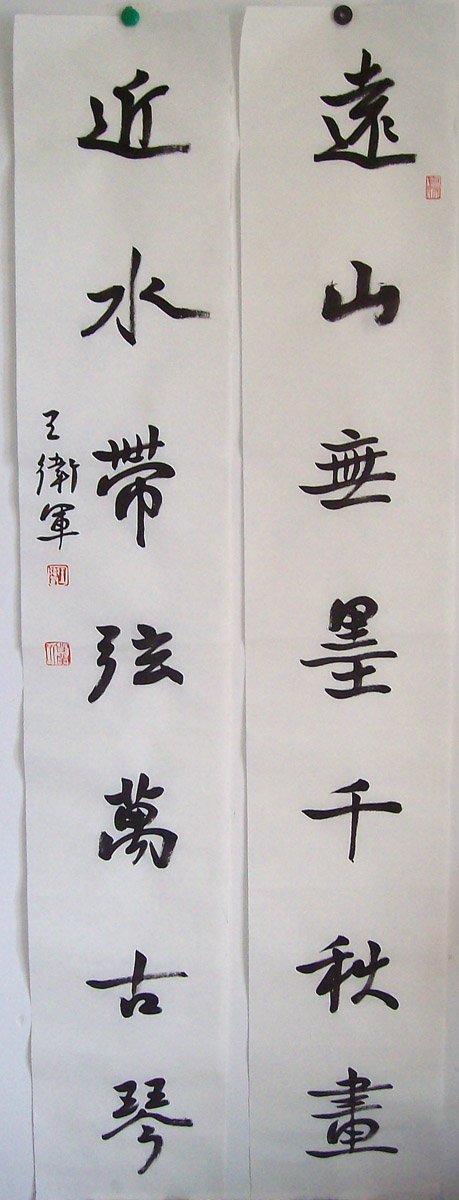 遠山無墨千秋畫
近水帶弦萬古琴
王衛軍